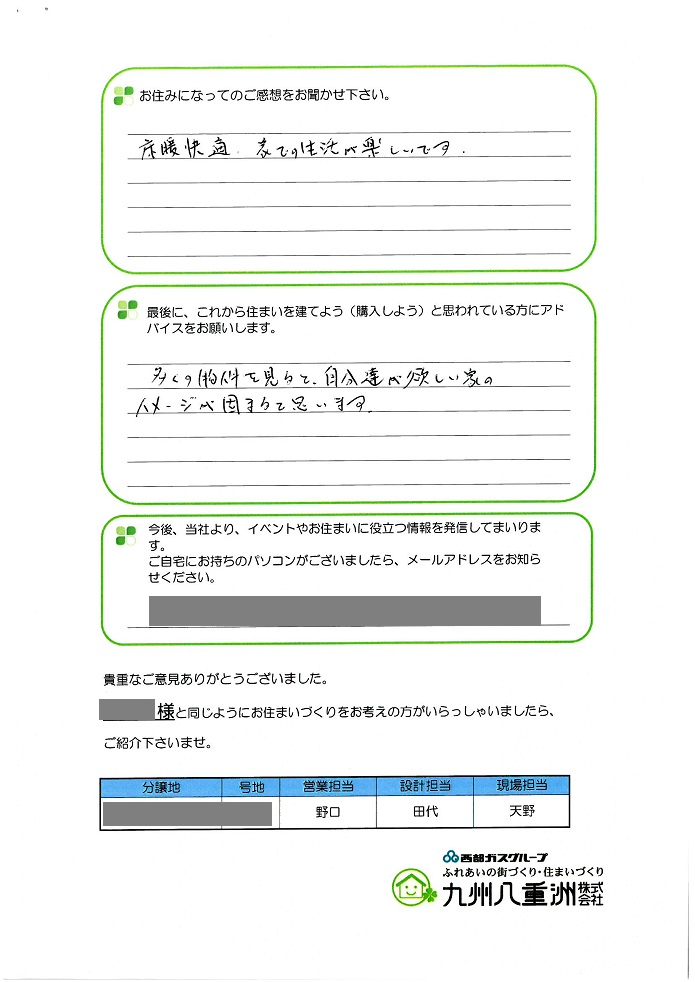 お住みになってのご感想をお聞かせ下さい。
床暖快適、家での生活が楽しいです。
最後に、これから住まいを建てよう（購入しよう）と思われている方にアド
バイスをお願いします。
多くの物件を見ると、自分達が欲しい家の
イメージが固まると思います。
今後、当社より、イベントやお住まいに役立つ情報を発信してまいりま
す。
ご自宅にお持ちのパソコンがございましたら、メールアドレスをお知ら
せください。
貴重なご意見ありがとうございました。
様と同じようにお住まいづくりをお考えの方がいらっしゃいましたら、
ご紹介下さいませ。
分譲地 号地 営業担当 設計担当 現場担当
野口 田代 天野
西部ガスグループ
ふれあいの街づくり・住まいづくり
九州八重洲株式会社